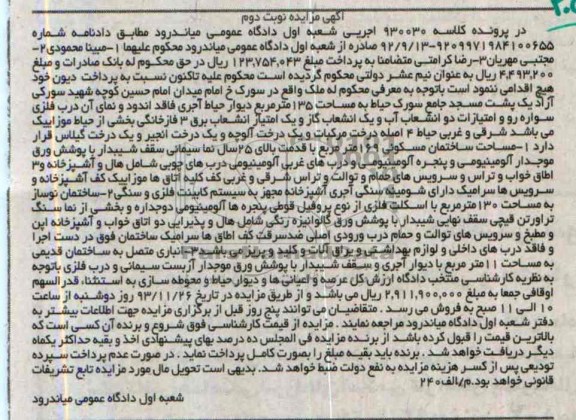 آگهی مزایده نوبت دوم
در پرونده کلاسه ۹۳۰۰۳۰ اجرایی شعبه اول دادگاه عمومی میاندرود مطابق دادنامه شماره
۹۲/۹/۱۳-۹۲۰۹۹۷۱۹۸۴۱۰۰۶۵۵ صادره از شعبه اول دادگاه عمومی میاندرود محکوم علیهما ۱-مبینا محمودی ۲-
مجتبی مهربان ۳-رضا کرامتی متضامنا به پرداخت مبلغ ۱۲۳,۷۵۴,۰۴۳ ریال در حق محکوم له بانک صادرات و مبلغ
۴,۴۹۳,۲۰۰ ریال به عنوان نیم عشر دولتی محکوم گردیده است محکوم علیه تاکنون نسبت به پرداخت دیون خود
هیچ اقدامی ننموده است باتوجه به معرفی محکوم له ملک واقع در سورک خ امام میدان امام حسین کوچه شهید سورکی
آزاد یک پشت مسجد جامع سورک حیاط به مساحت ۱۳۵ مترمربع دیوار حیاط آجری فاقد اندود و نمای آن درب فلزی
سواره رو و امتیازات دو انشعاب آب و یک انشعاب گاز و یک امتیاز انشعاب برق ۳ فاز خانگی بخشی از حیاط موزاییک
می باشد شرقی و غربی حیاط ۴ اصله درخت مرکبات و یک درخت آلوچه و یک درخت انجیر و یک درخت گیلاس قرار
دارد ۱-مساحت ساختمان مسکونی ۱۶۱ متر مربع با قدمت بالای ۲۵ سال نما سیمانی سقف شیبدار با پوشش ورق
موجدار آلومینیومی و پنجره آلومینیومی و درب های غربی آلومینیومی درب های چوبی شامل هال و آشپزخانه و ۳
اطاق خواب و تراس و سرویس های حمام و توالت و تراس شرقی و غربی کف کلیه اتاق ها موزاییک کف آشپزخانه و
سرویس ها سرامیک دارای شومینه سنگی آجری آشپزخانه مجهز به سیستم کابینت فلزی و سنگی ۲-ساختمان نوساز
به مساحت ۱۳۰ مترمربع با اسکلت فلزی از نوع پروفیل قوطی پنجره ها آلومینیومی دوجداره و بخشی از نما سنگ
تراورتن قیچی سقف نهایی شیبدار با پوشش ورق گالوانیزه رنگی شامل هال و پذیرایی دو اتاق خواب و آشپزخانه اپن
و مطبخ و سرویس های توالت و حمام درب ورودی اصلی ضدسرقت کف اطاق ها سرامیک ساختمان فوق در دست اجرا
و فاقد درب های داخلی و لوازم بهداشتی و یراق آلات و کلید و پریز می باشد ۳-انباری متصل به ساختمان قدیمی
به مساحت ۱۱ متر مربع با دیوار آجری و سقف شیبدار با پوشش ورق موجدار آزبست سیمانی و درب فلزی باتوجه
به نظریه کارشناسی منتخب دادگاه ارزش کل عرصه و اعیانی ها و دیوار حیاط و محوطه سازی به استثناء قدر السهم
اوقافی جمعا به مبلغ ۲,۹۱۱,۹۰۰,۰۰۰ ریال می باشد و از طریق مزایده در تاریخ ۹۳/۱۱/۲۶ روز دوشنبه از ساعت
۱۰ الی ۱۱ صبح به فروش می رسد . متقاضیان می توانند پنج روز قبل از برگزاری مزایده جهت اطلاعات بیشتر به
دفتر شعبه اول دادگاه میاندرود مراجعه نمایند . مزایده از قیمت کارشناسی فوق شروع و برنده آن کسی است که
بالاترین قیمت را قبول کرده باشد از برنده مزایده فی المجلس ده درصد بهای پیشنهادی اخذ و بقیه حداکثر یکماه
دیگر دریافت خواهد شد . برنده باید بقیه مبلغ را بصورت کامل پرداخت نماید . در صورت عدم پرداخت سپرده
تودیعی پس از کسر هزینه مزایده به نفع دولت ضبط خواهد شد. بدیهی است تحویل مال مورد مزایده تابع تشریفات
قانونی خواهد بود.م/الف ۲۴۰
شعبه اول دادگاه عمومی میاندرود